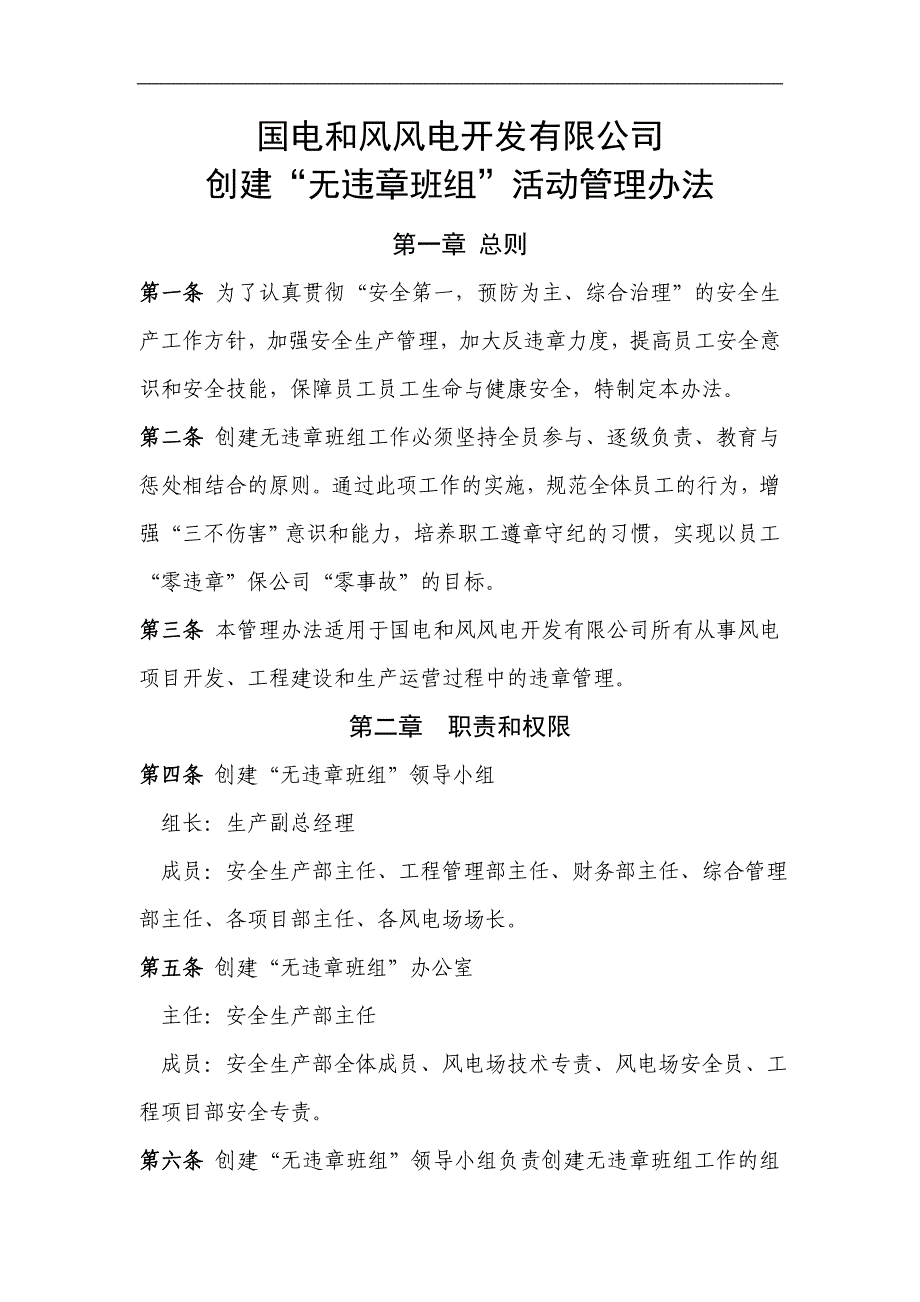 国电和风风电开发有限公司
创建“无违章班组”活动管理办法
第一章 总则
第一条 为了认真贯彻“安全第一，预防为主、综合治理”的安全生
产工作方针，加强安全生产管理，加大反违章力度，提高员工安全意
识和安全技能，保障员工员工生命与健康安全，特制定本办法。
第二条 创建无违章班组工作必须坚持全员参与、逐级负责、教育与
惩处相结合的原则。通过此项工作的实施，规范全体员工的行为，增
强“三不伤害”意识和能力，培养职工遵章守纪的习惯，实现以员工
“零违章”保公司“零事故”的目标。
第三条 本管理办法适用于国电和风风电开发有限公司所有从事风电
项目开发、工程建设和生产运营过程中的违章管理。
第二章 职责和权限
第四条 创建“无违章班组”领导小组
组长：生产副总经理
成员：安全生产部主任、工程管理部主任、财务部主任、综合管理
部主任、各项目部主任、各风电场场长。
第五条 创建“无违章班组”办公室
主任：安全生产部主任
成员：安全生产部全体成员、风电场技术专责、风电场安全员、工
程项目部安全专责。
第六条 创建“无违章班组”领导小组负责创建无违章班组工作的组